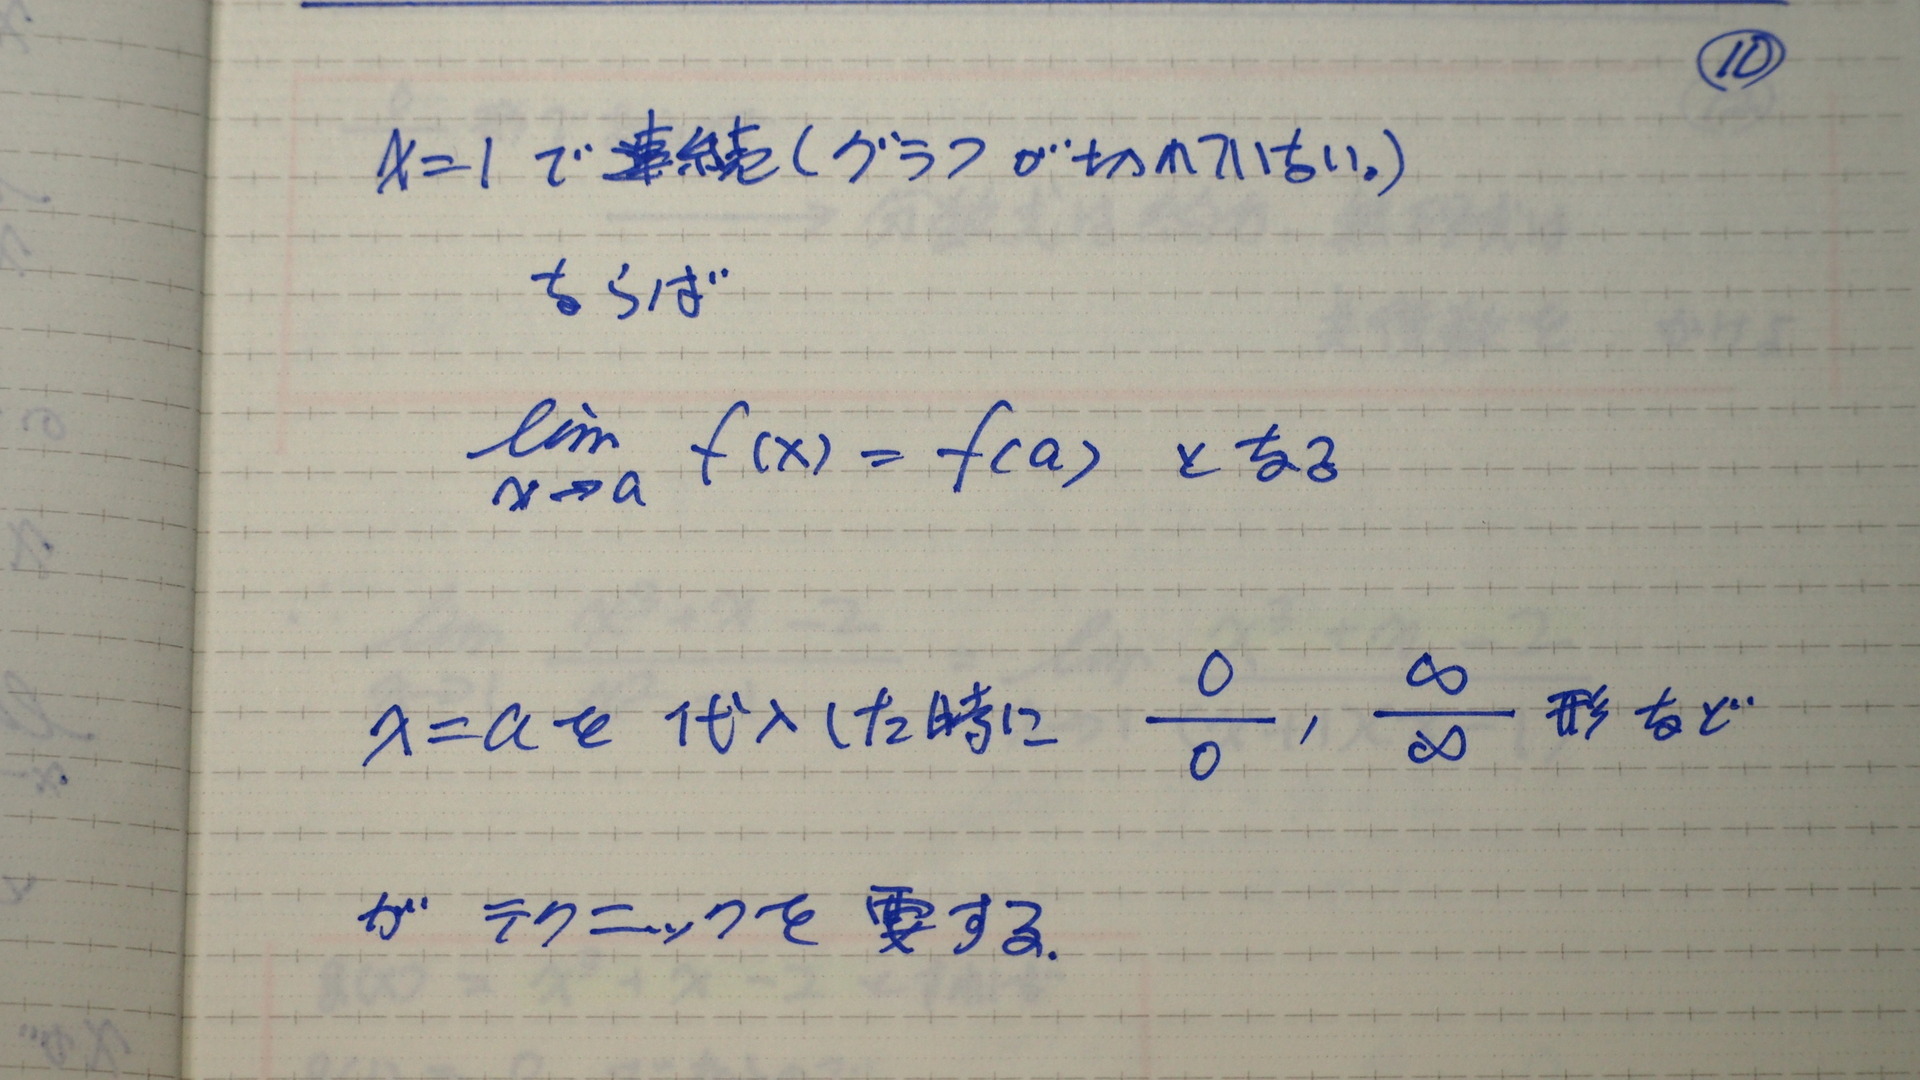 ⑩
x=1 で連続(グラフが切れていない。)
ならば
lim f(x) = f(a) となる
x→a
x=aを 代入した時に 0/0, ∞/∞ 形など
が テクニックを 要する.